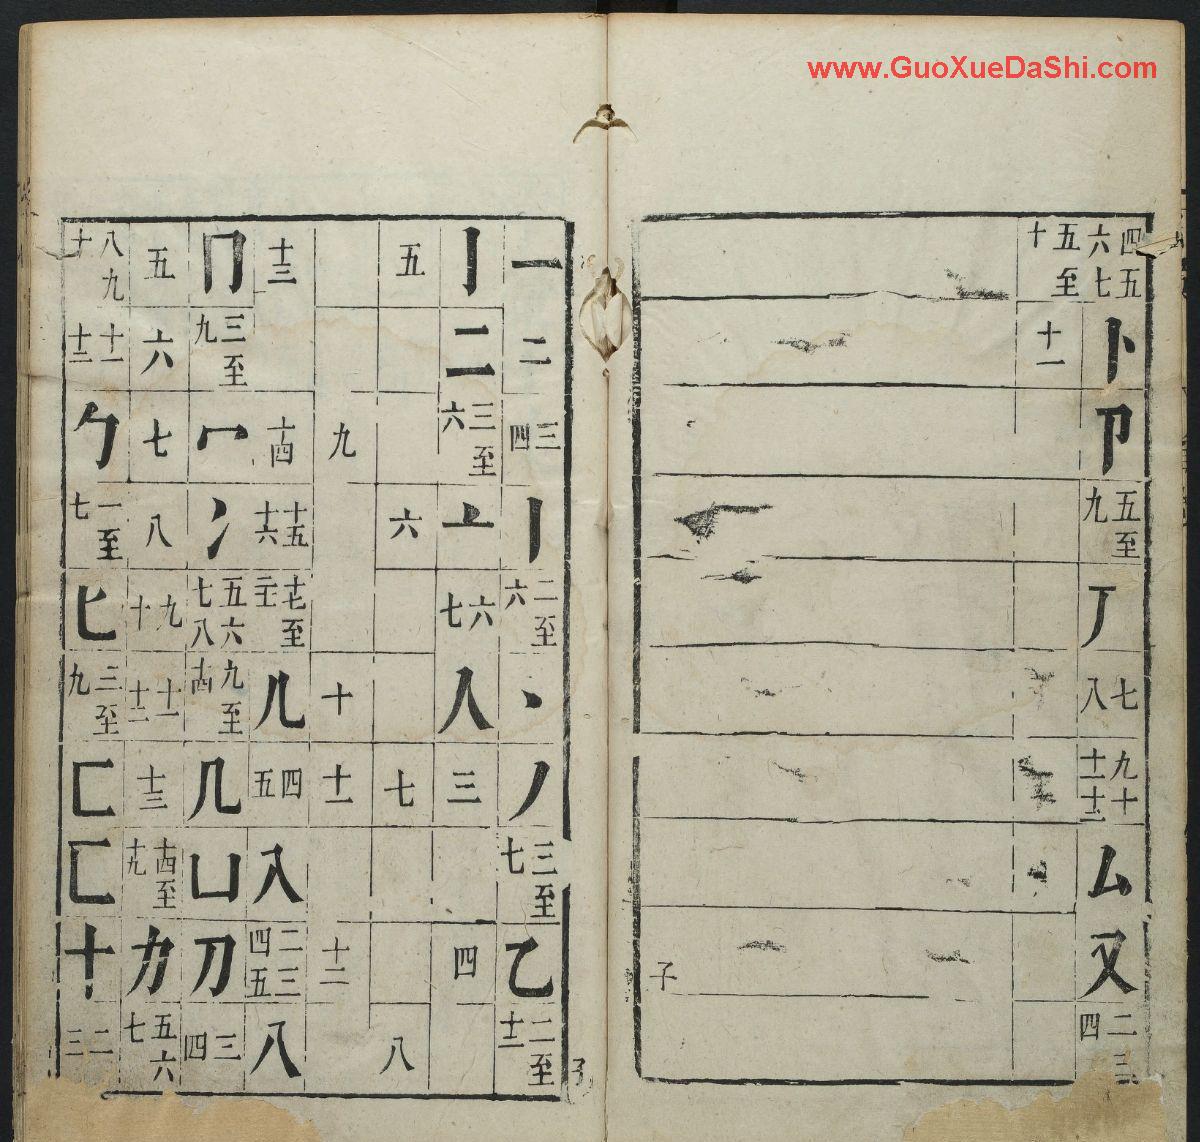 四五六七
卜
卩
五至九
厂
七八
九十十一十二
厶
又
二三四
五至十
十一
子
一
二
三四
丨
二至六
丶
丿
三至七
乙
二至十二
亅
二
三至六
亠
六七
人
三
四
五
六
七
八
九
十
十一
十二
十三
十四
十五十六
十七至二十
儿
四五
入
二三四五
八
冂
三至九
冖
冫
五六七八
九至十四
几
凵
刀
三四
五
六
七
八
九十
十一十二
十三
十四至十九
力
五六七
八九十
十一十二
勹
一至七
匕
三至九
匚
匸
十
二三
子
www.GuoXueDaShi.com